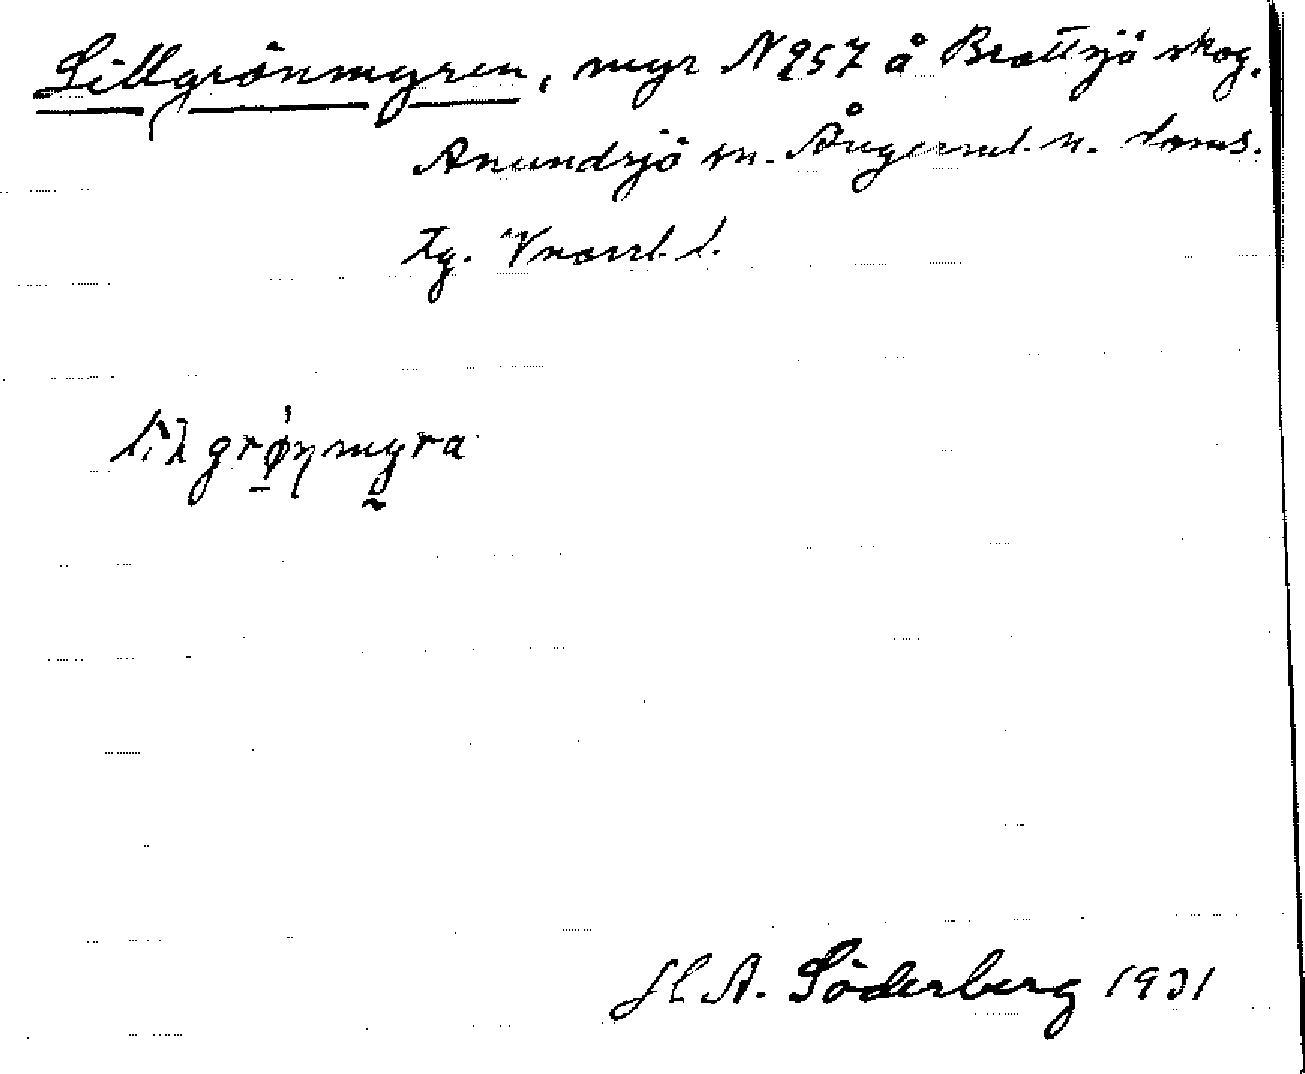 Lillgrönmyren, myr N 957 å Brattsjö skog.
Anundsjö sn. Ångerml. n. doms.
Tg. Vnorrl. l.
lilgrønmyra
H A. Söderberg 1931